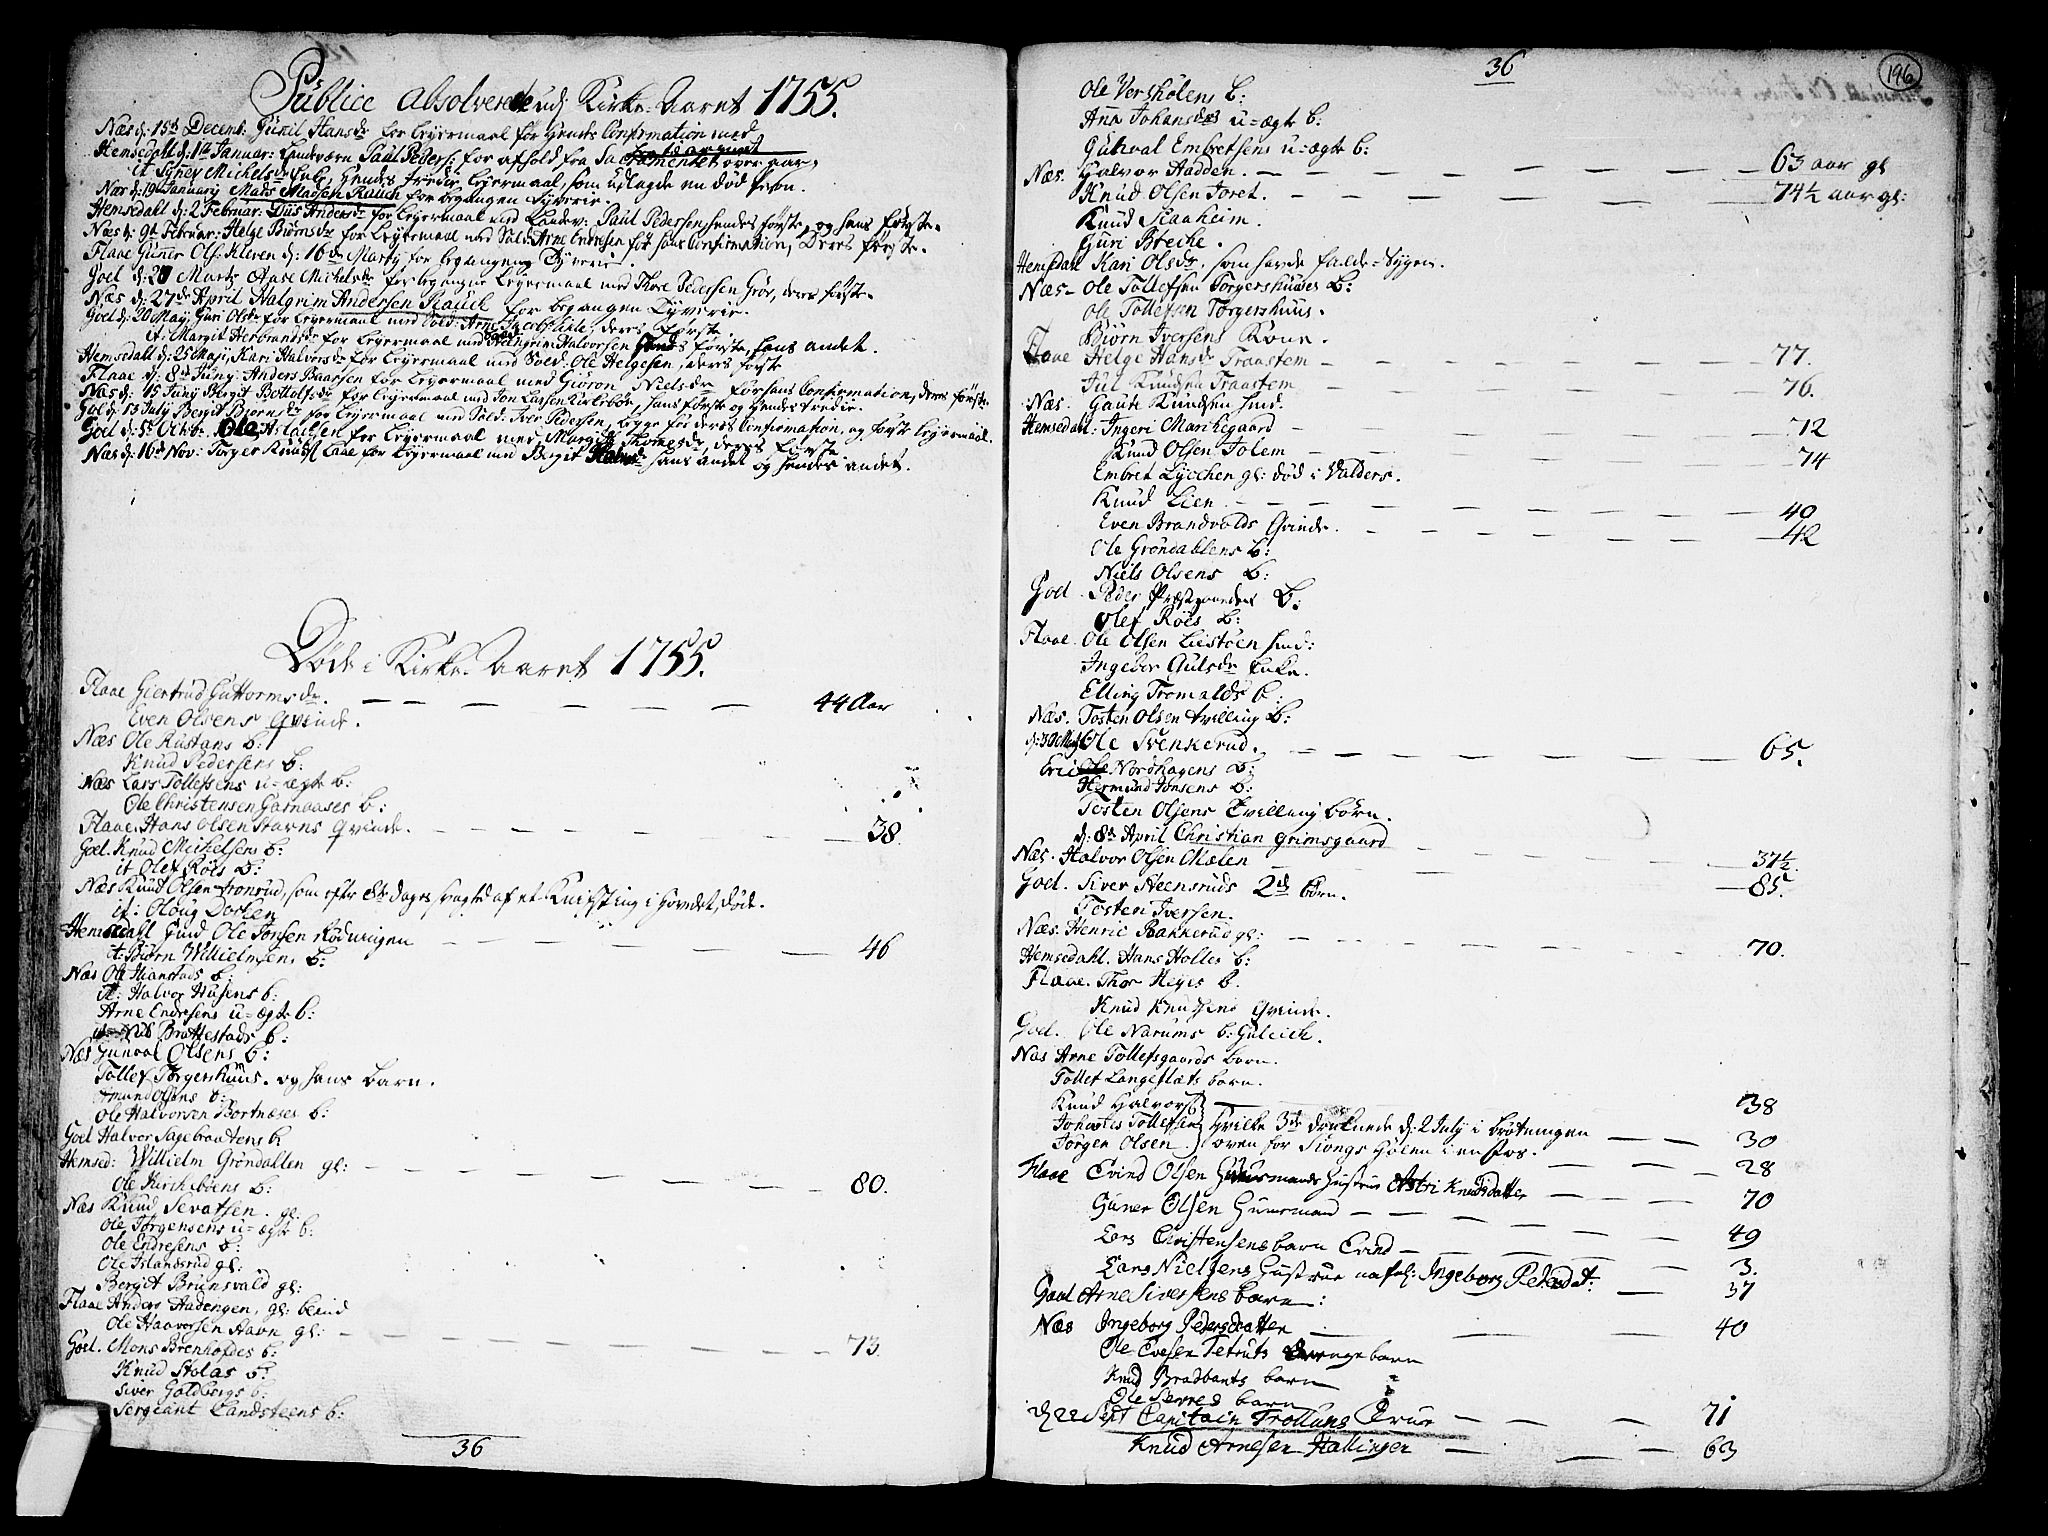 Publice absolverede udj Kirke-Aaret 1755.
Næs d: 15de Decemb: Gunil Hansdr for Leyermaal før hendes Confirmation med
Hemsedall d: 1ste Januar: Landværn Paul Peders: for afhold fra Sacramentet over aar,
it Signev Michelsdr hendes tredie Leyermaal, som udlagde en død Person.
Næs d: 19 January Mads Madsen Rauch for begangen Tyverie.
Hemsedahl d: 2 Februar: Diis Andersdr for Leyermaal med Landv: Paul Pedersen hendes første og hans første.
Næs d: 9de Februar: Helge Biørnsdr for Leyermaal med Sold: Arne Endresen før hans Confirmation, Deres første.
Flaae Guner Ols: Kleven d: 16de Marty for begangen Tyverie.
Goel d: 20 Marts Aase Michelsdr for begangne Leyermaal med Thore Pedersen Grøv, deres første.
Næs d: 27de April Halgrim Andersen Rauch for begangen Tyverie.
Goel d: 20 Maij Guri Olsdr for Leyermaal med Sold: Arne Jacobs: Lille, deres første.
it: Margit Herbrandsdr for Leyermaal med Halgrim Halvorsen hendes første, hans andet.
Hemsedahl d: 25 Maji, Kari Halvorsdr for Leyermaal med Sold: Ole Helgesen, deres første
Flaae d: 8de Juny: Anders Baarsen for Leyermaal med Giøron Nielsdr før hans Confirmation, deres første.
Næs d: 15 Juny Birgit Bottolfsdr for Leyermaal med Jon Larsen Kirkebøe, hans første og hendes tredie.
Gol d: 13 July Bergit Biørnsdr for Leyermaal med Sold: Iver Pedersen, begge før deres Confirmation, og første Leyermaal.
Goel d: 5te Octbr. Ole Aslachsen for Leyermaal med Margit Thomesdr, deres første
Næs d: 16de Nov: Torger Knuds: Laae for Leyermaal med Birgit hans andet og hendes andet.
Døde i Kirke-Aaret 1755.
Flaae Giertrud Guttormsdr. 44 Aar
Even Olsens qvinde.
Næs Ole Rustans b:
Knud Pedersens b:
Næs Lars Tollefsens u-ægte b:
Ole Christensen Garnaases b:
Flaae. Hans Olsen Stavns qvinde. 38.
Goel. Knud Michelsens b:
it Olef Roes b:
Næs Knud Olsen Tronrud, som efter 8te dages svaghed af et Knifsting i hovedet, døde.
it: Oloug Dorhen
Hemsedahl Gund Ole Jonsen Rødningen 46
it: Biørn Willielmsens b:
Næs Ole Hianstads b:
it: Halvor Husens b:
Arne Endresens u-ægte b:
it Nils Brattestads b:
Næs Gunval Olsens b:
Tollef Torgershuus. og hans barn.
Amund Olsens b:
Ole Halvorsen Bortnæses b:
Goel Halvor Sagebraatens b:
Hemsed: Willielm Grøndallen gl: 80.
Ole Kirchebøens b:
Næs Knud Sevatsen. gl.
Ole Torgensens u-ægte b:
Ole Endresens b:
Ole Islandsrud gl:
Bergit Brunsvald gl:
Flaae Anders Aadengen, gl: blind
Ole Haavorsen Stavn gl: 73.
Goel. Mons Brenhofdes b:
Knud Stolas b:
Siver Goldbergs b:
Sergeant Landsteens b:
36
36
196
Ole Versholens b:
Ana Johansdrs u-ægte b:
Gunval Embretsens u-ægte b:
Næs. Halvor Hadden. 63 aar gl
Knud Olsen Joret. 74½ aar gl:
Knud Staaheim.
Guri Breche.
Hemsedal Kari Olsdr, som hafde falde-Sygen.
Næs- Ole Tollefsen Torgershuuses b:
Ole Tollefsen Torgershuus.
Biørn Iversens Kone.
Flaae Helge Hansdr Traastem 77.
Jul Knudsen Traastem 76.
Næs. Gaute Knudsen hmd.
Hemsedal: Ingeri Markegaard 72
Knud Olsen Tolem 74
Embret Lychen gl: død i Valders.
Knud Lien 40
Even Brandvolds Qvinde. 42
Ole Grøndahlens b:
Niels Olsens b:
Goel. Peder Præstgaardens b:
Olef Roes b:
Flaae. Ole Olsen Liestøen hmd:
Ingebor Gulsdr Enke.
Elling Tromalds b:
Næs. Tosten Olsen tvilling b:
d: 30 May Ole Svenkerud. 65.
Eric Nordhagens b:
Hermund Jonsens b:
Tosten Olsens Tvilling børn.
d: 8de April Christian Grimsgaard
Næs. Halvor Olsen Mælen 37½
Goel. Siver Steensruds 2de børn. 85
Tosten Iversen.
Næs. Henric Bakkerud gl: 70.
Hemsedahl. Hans Holtes b:
Flaae. Thor Heyes b.
Knud Knudsens qvinde.
Goel. Ole Narums b: Guleich.
Næs Arne Tollefsgaards barn.
Tollef Langeslæts barn.
Knud Halvors: 38
Johannes Tollefsen hvilke 3de druknede d: 2 July i brøtningen 30
Jørgen Olsen oven for Kongs hølen i en Fos. 28
Flaae Evind Olsen Huusmands hustrue Astri Knudsdatter 70
Guner Olsen Huusmand 49
Lars Christensens barn Evind 3.
Lars Nielsens Hustrue nafnl: Ingeborg Pedersdt: 37
Goel Arne Siversens barn:
Næs Ingeborg Pedersdatter 40
Ole Evesen Tetruts drengebarn
Knud Bradbants barn
Ole Sevres barn
d 22 Sept Capitain Trolluns Frue 71
Knud Arnesen Hallinger 63